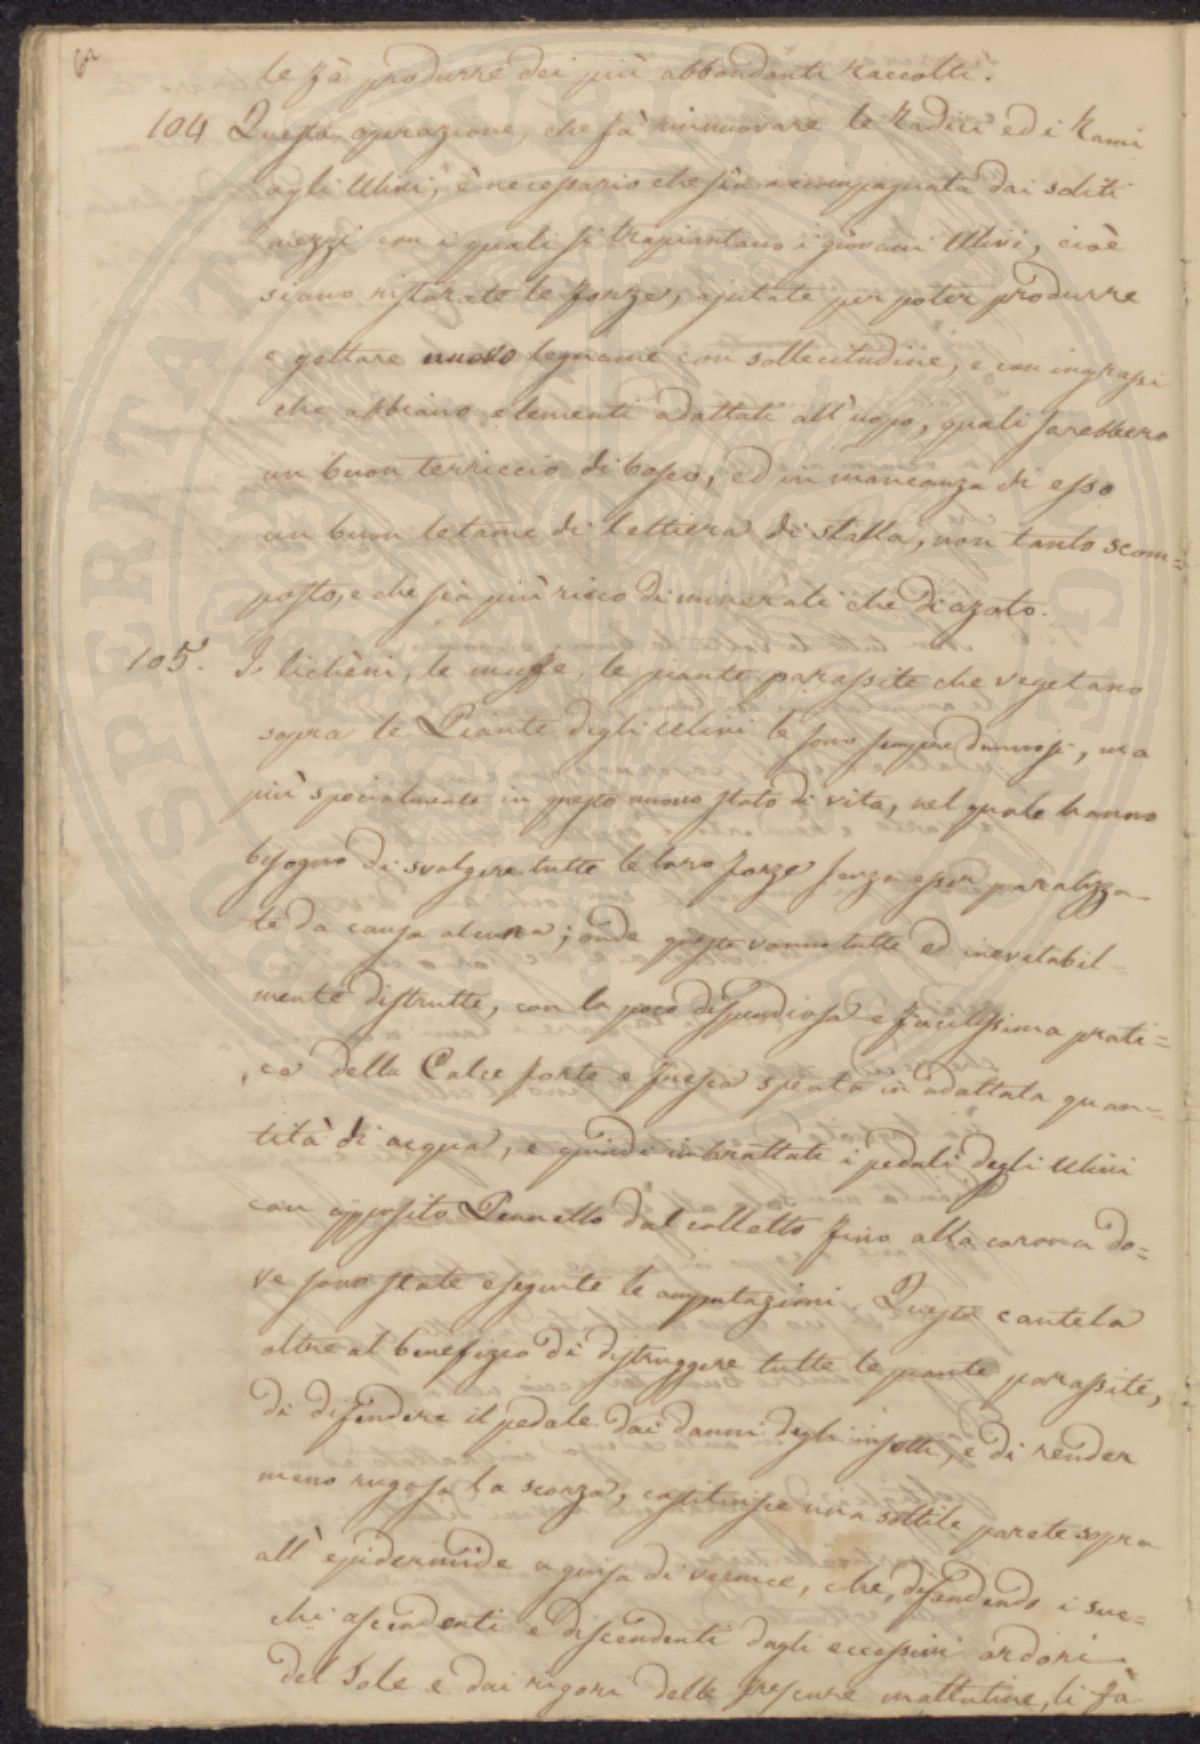 62
le fà produrre dei più abbondanti Raccolti.
104 Questa operazione, che fà rinnuovare le Radici ed i Rami
agli Ulivi, è necessario che sia accompagnata dai soliti
mezzi con i quali si trapiantano i giovani Ulivi, cioè
siano ristorate le forze, ajutate per poter produrre
e gettare nuovo legname con sollecitudine, e con ingrassi
che abbiano elementi adattati all'uopo, quali sarebbero
un buon terriccio di bosco, ed in mancanza di esso
un buon letame di lettiera di stalla, non tanto scom=
posto, e che sia più ricco di minerali che di azoto.
105. I lichèni, le muffe, le piante parassite che vegetano
sopra le Piante degli Ulivi le sono sempre dannosi, ma
più specialmente in questo nuovo stato di vita, nel quale hanno
bisogno di svolgere tutte le loro forze senza esser paralizza-
te da causa alcuna; onde queste vanno tutte ed inevitabil=
mente distrutte, con la poco dispendiosa e facilissima prati=
ca della Calce forte e fresca spenta in adattata quan=
tità di acqua, e quindi imbrattati i pedali degli Ulivi
con apposito Pennello dal colletto fino alla corona do=
ve sono state eseguite le amputazioni. Questa cautela
oltre al benefizio di distruggere tutte le piante parassite,
di difendere il pedale dai danni degli insetti, e di render
meno rugosa la scorza, costituisce una sottile parete sopra
all'epidermide a guisa di vernice, che, difendendo i suc=
chi ascendenti e discendenti dagli eccessivi ardori
del Sole e dai rigori delle frescure mattutine, li fà
SOSPERITATI PUBLICAE AUGENDAE